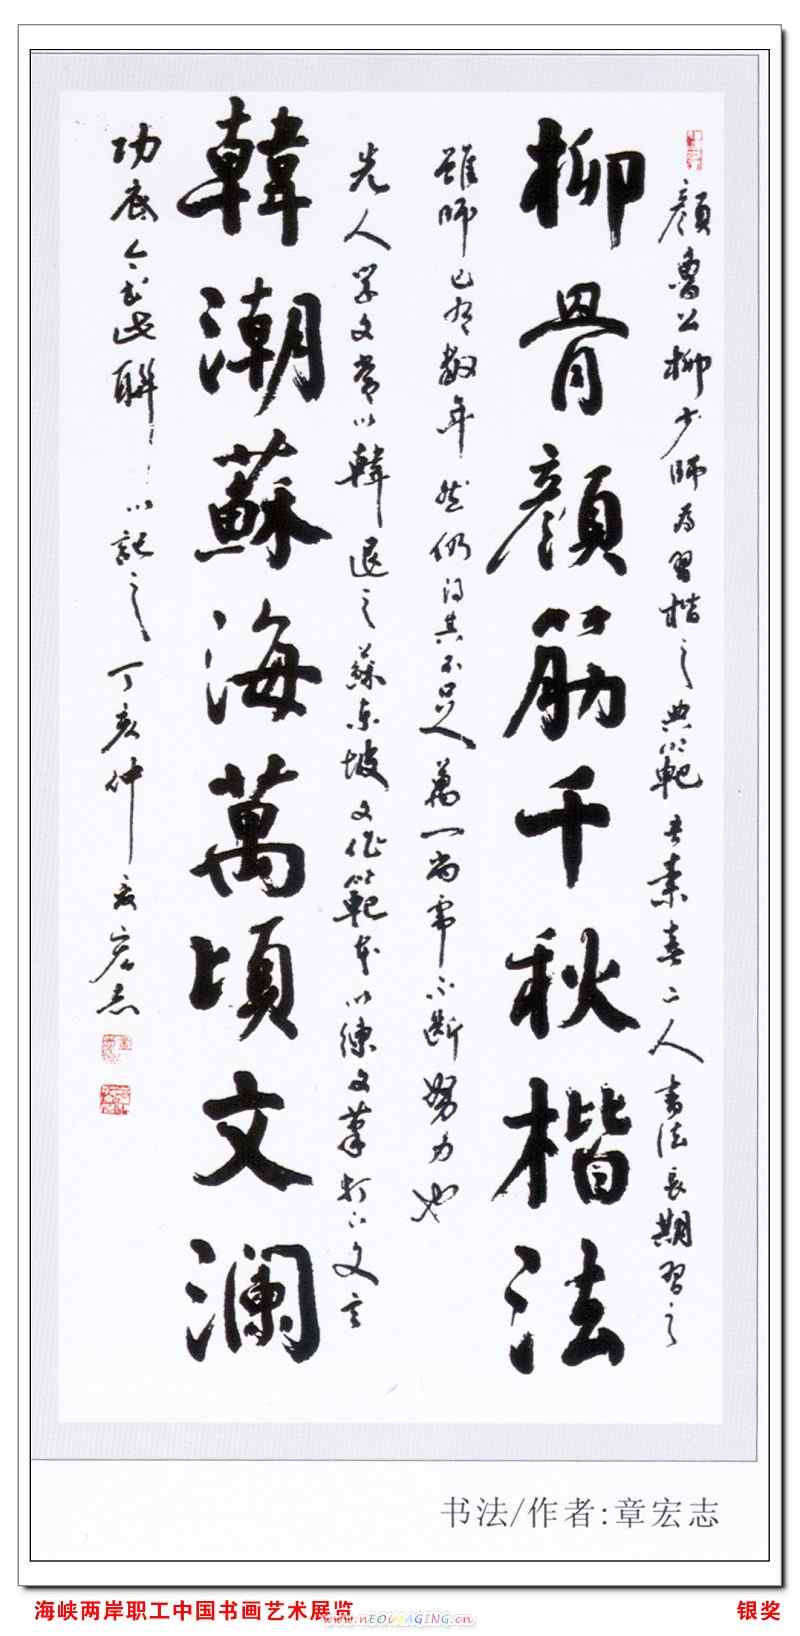 顔魯公柳少師為習楷之典範吾素喜二人書法長期習之
柳骨顔筋千秋楷法
雖師已有数年然仍得其不足萬一尚需不断努力也
先人学文常以韓退之蘇东坡文作範本以練文筆打下文言
韓潮蘇海萬頃文瀾
功底今書此聯以記之丁亥仲夏宏志
书法/作者:章宏志
海峡两岸职工中国书画艺术展览
www.NEOIMAGING.cn
银奖